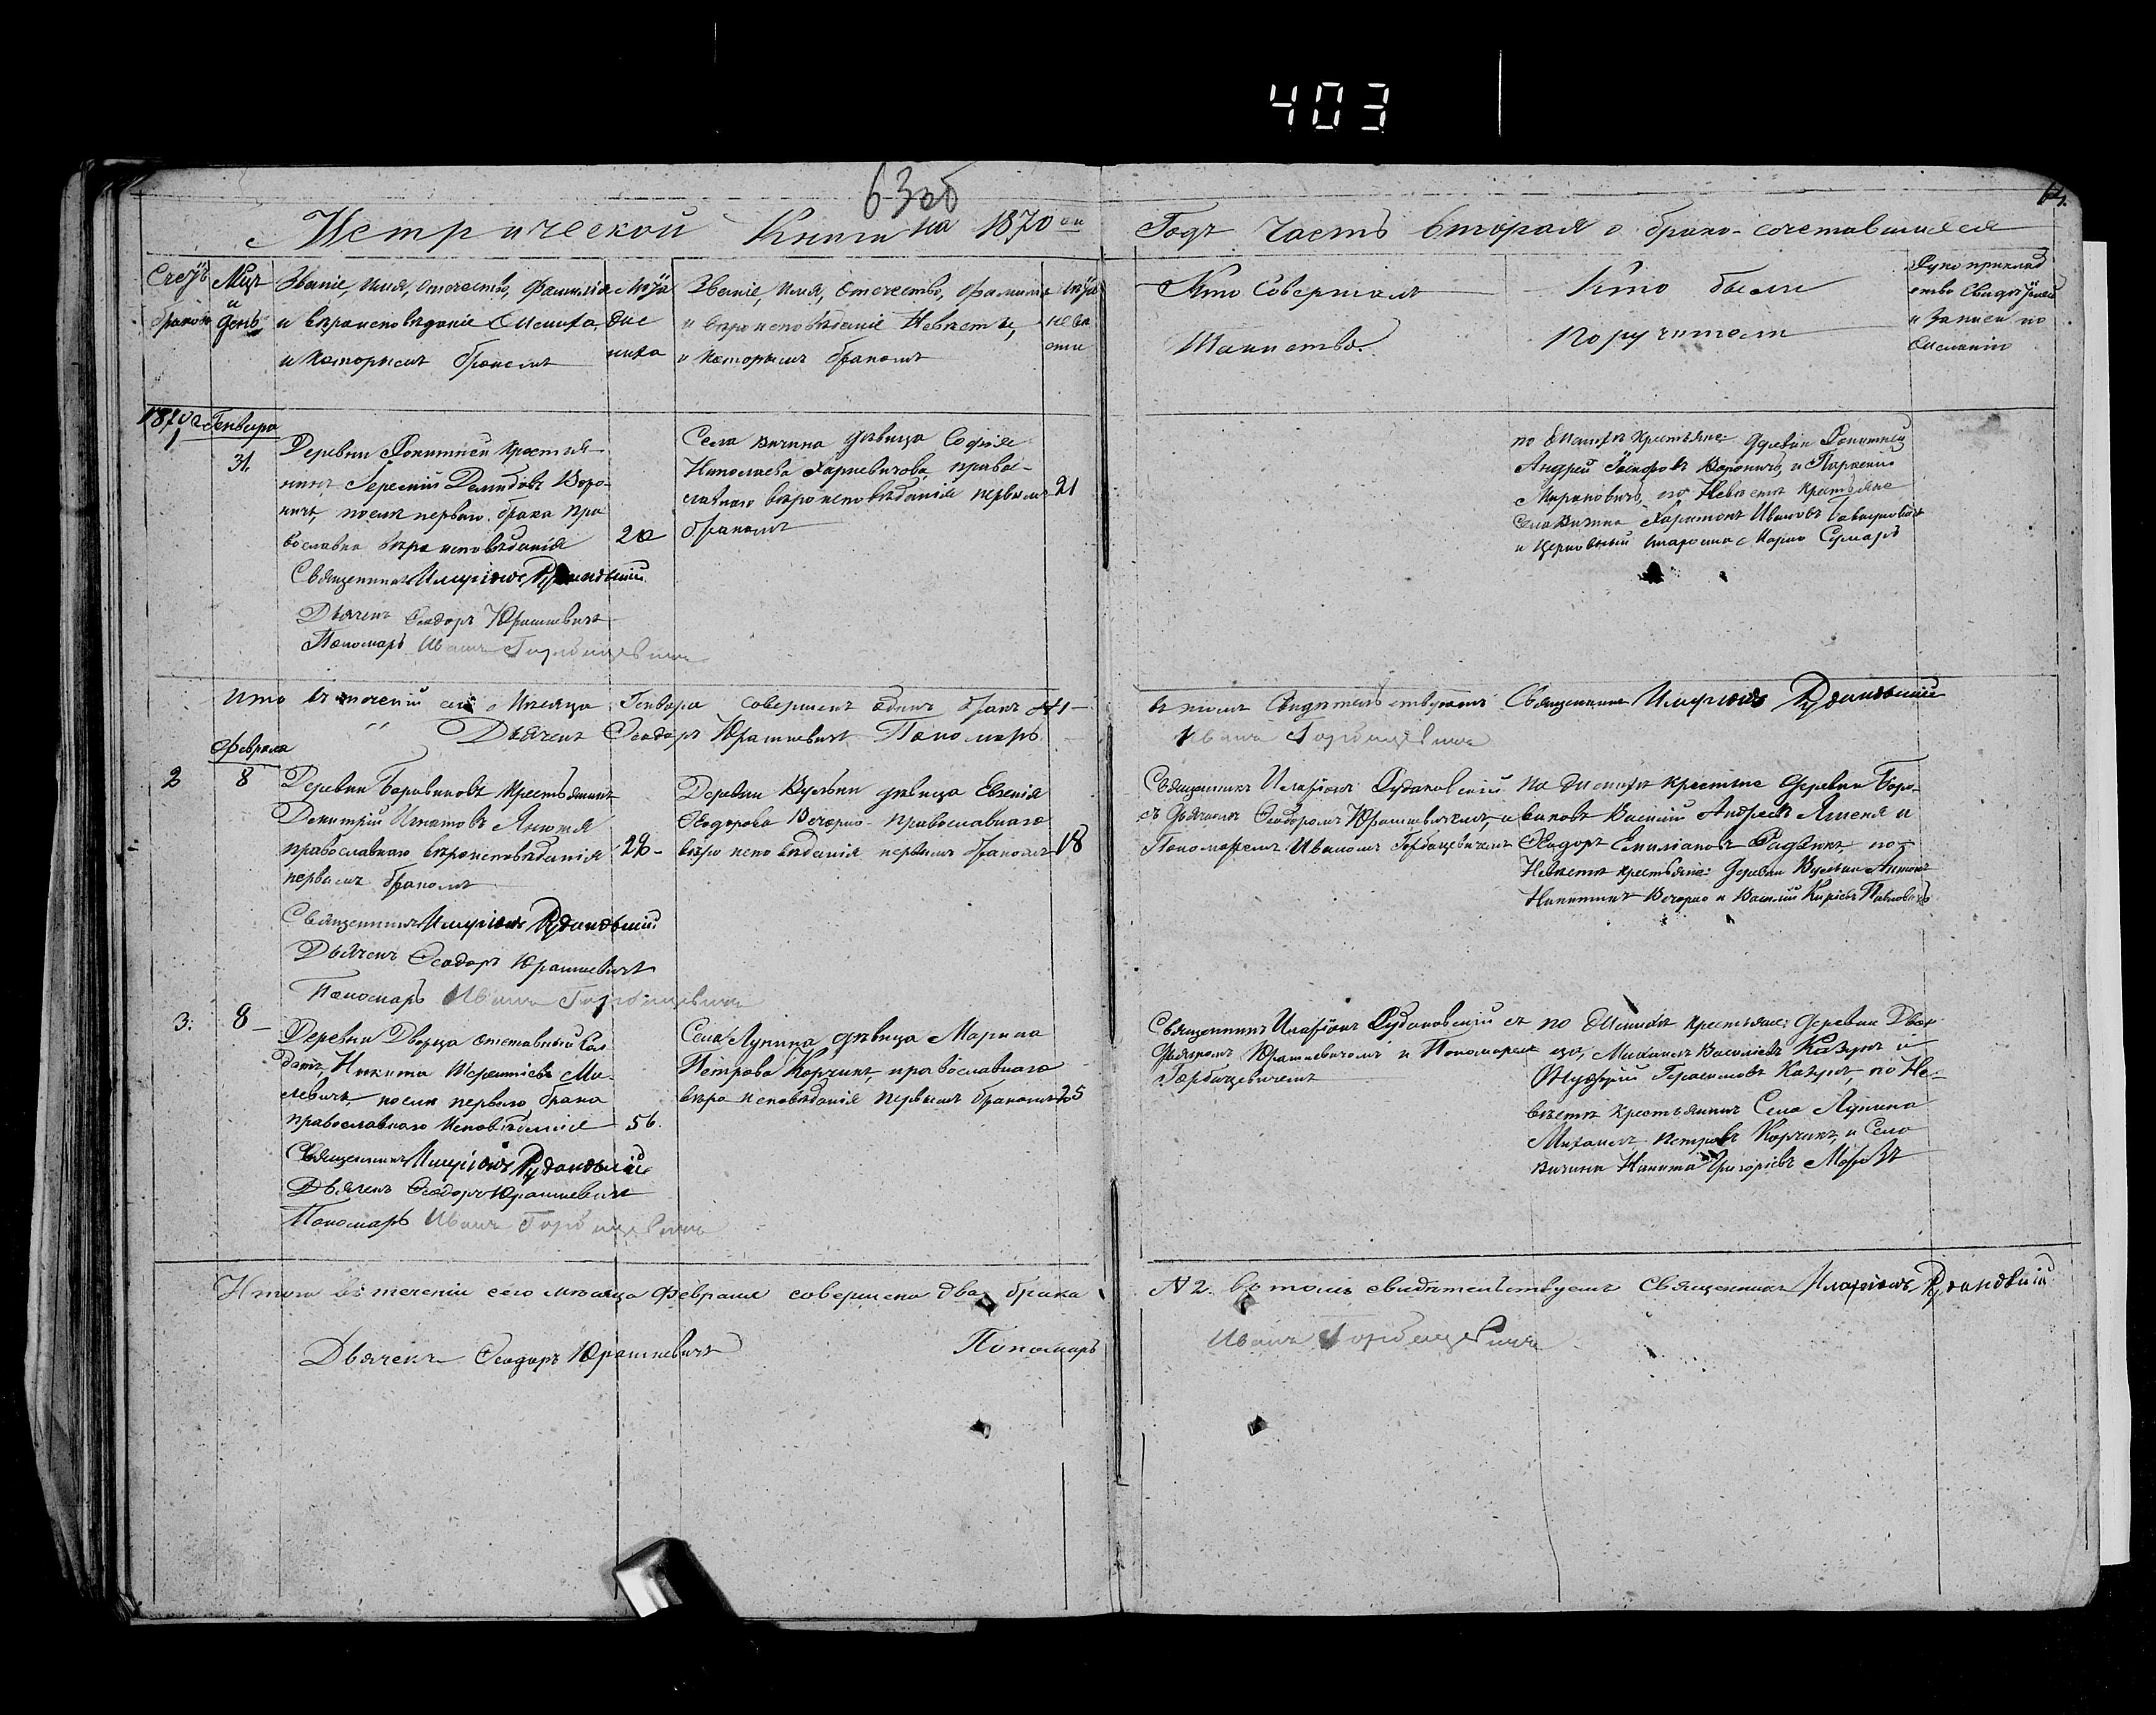 403
63 об
64.
Метрической Книги на 1870 ой Годъ Часть вторая о брако-сочетавшихся
Счетъ браковъ
Мцъ и день
Званіе, имя, отчество, фамилія
и вѣроисповѣданіе Жениха
и которымъ бракомъ
Лѣта же
ниха
Званіе, имя, отчество, фамилія
и вѣроисповѣданіе Невѣсты,
и которымъ бракомъ
Лѣта
невѣ
сты
Кто Совершалъ
Таинство.
Кто были
Поручители
Рукоприклад
ство Свидѣтелей
и Записи по
Желанію
1870 г. Генваря
1
31.
Деревни крестья-
нинъ Демидовъ Воро-
ничъ, послѣ перваго брака пра
вославна вѣроисповѣданія
Священникъ Иларіонъ Рудаковскій
Дьячекъ Ѳеодоръ Юрашкевичъ
Пономарь Иванъ Горбацевичъ
Села Вичина дѣвица Софія
Николаева Харкевичова, право-
славнаго вѣроисповѣданія первымъ
бракомъ
21
по Женихѣ крестьяне: деревни
Андрей Вороничъ, и
Мироновичъ, по Невѣстѣ крестьяне
Села Вичина Харитонъ Ивановъ
и Церковный староста Марко
Итого въ теченіи сего Мѣсяца Генваря совершенъ одинъ бракъ №1
въ томъ Свидѣтельствуютъ Священникъ Иларіонъ Рудаковскій
Дьячекъ Ѳеодоръ Юрашкевичъ Пономарь
Иванъ Горбацевичъ
Февраля
2
8
Деревни Боровиковъ крестьянинъ
Димитрій Игнатовъ
православнаго вѣроисповѣданія
первымъ бракомъ
Священникъ Иларіонъ Рудаковскій
Дьячекъ Ѳеодоръ Юрашкевичъ
Пономарь Иванъ Горбацевичъ
Деревни Вульки дѣвица Евгенія
Ѳеодорова Вечорко православнаго
вѣроисповѣданія первымъ бракомъ
18
Священникъ Иларіонъ Рудаковскій
съ Дьячкомъ Ѳеодоромъ Юрашкевичемъ, и
Пономаремъ Иваномъ Горбацевичемъ
По Женихѣ крестьяне деревни Боро-
виковъ Василій Андреевъ и
Ѳеодоръ Емиліановъ по
Невѣстѣ крестьяне: деревни Вульки Антонъ
Никитинъ Вечорко и Василій
3.
8
Деревни Дворца отставный Сол
датъ, Никита Терентіевъ Ми-
левичъ, послѣ перваго брака
православнаго исповѣданія
56.
Священникъ Иларіонъ Рудаковскій
Дьячекъ Ѳеодоръ Юрашкевичъ
Пономарь Иванъ Горбацевичъ
Села Лунина дѣвица Марина
Петрова Корчикъ, православнаго
вѣроисповѣданія первымъ бракомъ
25
Священникъ Иларіонъ Рудаковскій съ
Дьячкомъ Юрашкевичемъ и Пономаремъ
Горбацевичемъ
по Женихѣ крестьяне: деревни Двор-
ца, Михаилъ Василіевъ Казунъ и
Герасимовъ Казунъ, по Не-
вѣстѣ крестьянинъ Села Лунина
Михаилъ Петровъ Корчикъ и Села
Вичина Никита Григоріевъ
Итого въ теченіи сего мѣсяца Февраля совершено два брака
№ 2. въ томъ свидѣтельствуемъ Священникъ Иларіонъ Рудаковскій
Дьячекъ Ѳеодоръ Юрашкевичъ
Пономарь
Иванъ Горбацевичъ